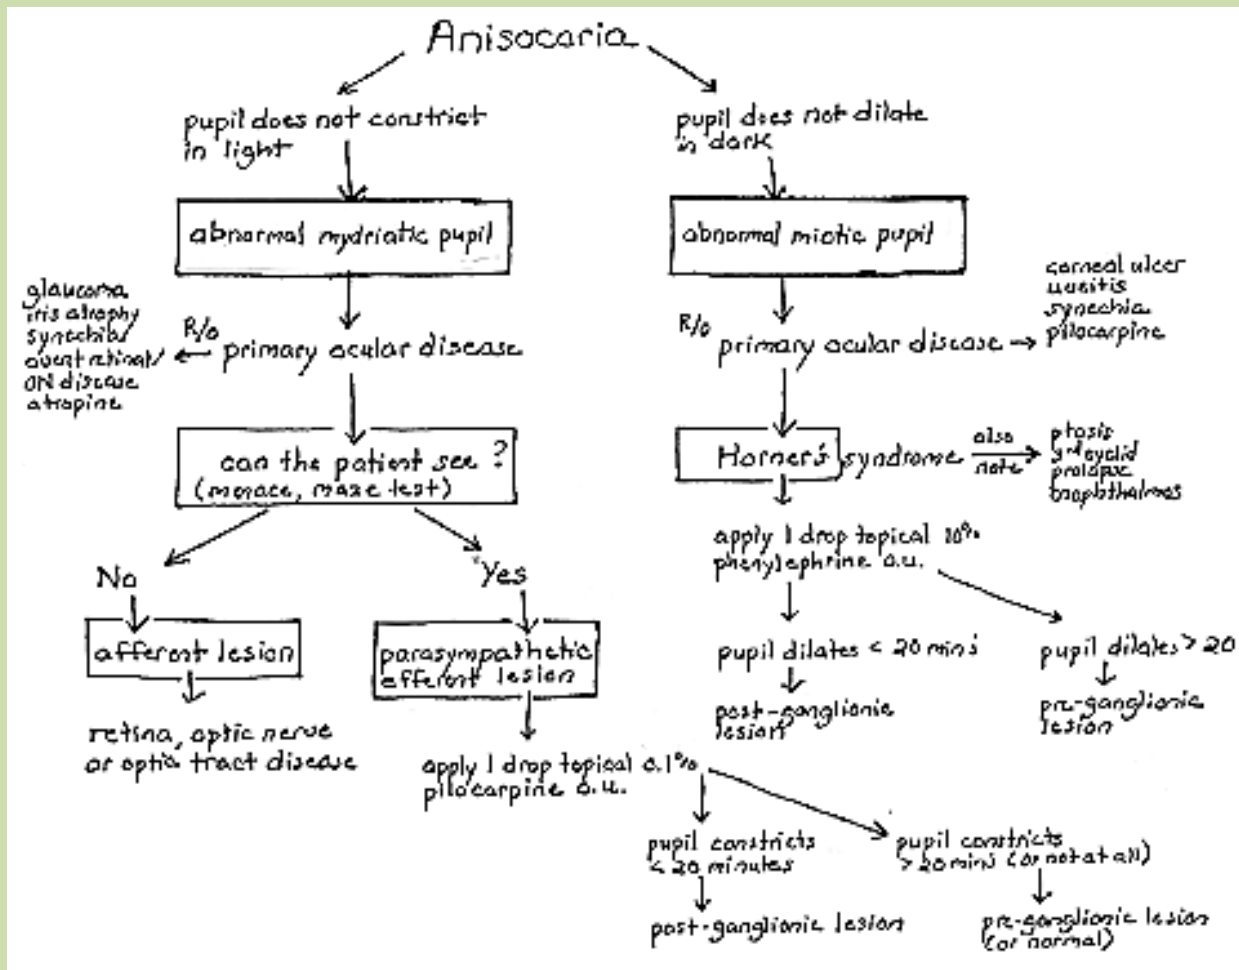 Anisocaria
pupil does not constrict
in light
abnormal mydriatic pupil
R/o
primary ocular disease
glaucoma
iris atrophy
synechia
retinal/
ON disease
atropine
can the patient see?
(menace, maze test)
No
afferent lesion
retina, optic nerve
or optic tract disease
Yes
parasympathetic
efferent lesion
apply 1 drop topical 0.1%
pilocarpine o.u.
pupil constricts
< 20 minutes
post-ganglionic lesion
pupil constricts
> 20 mins (or not at all)
pre-ganglionic lesion
(or normal)
pupil does not dilate
in dark
abnormal miotic pupil
R/o
primary ocular disease
corneal ulcer
uveitis
synechia
pilocarpine
Horner's syndrome
also
note
ptosis
3rd eyelid
prolapse
enophthalmos
apply 1 drop topical 10%
phenylephrine o.u.
pupil dilates < 20 mins
post-ganglionic
lesion
pupil dilates > 20
pre-ganglionic
lesion